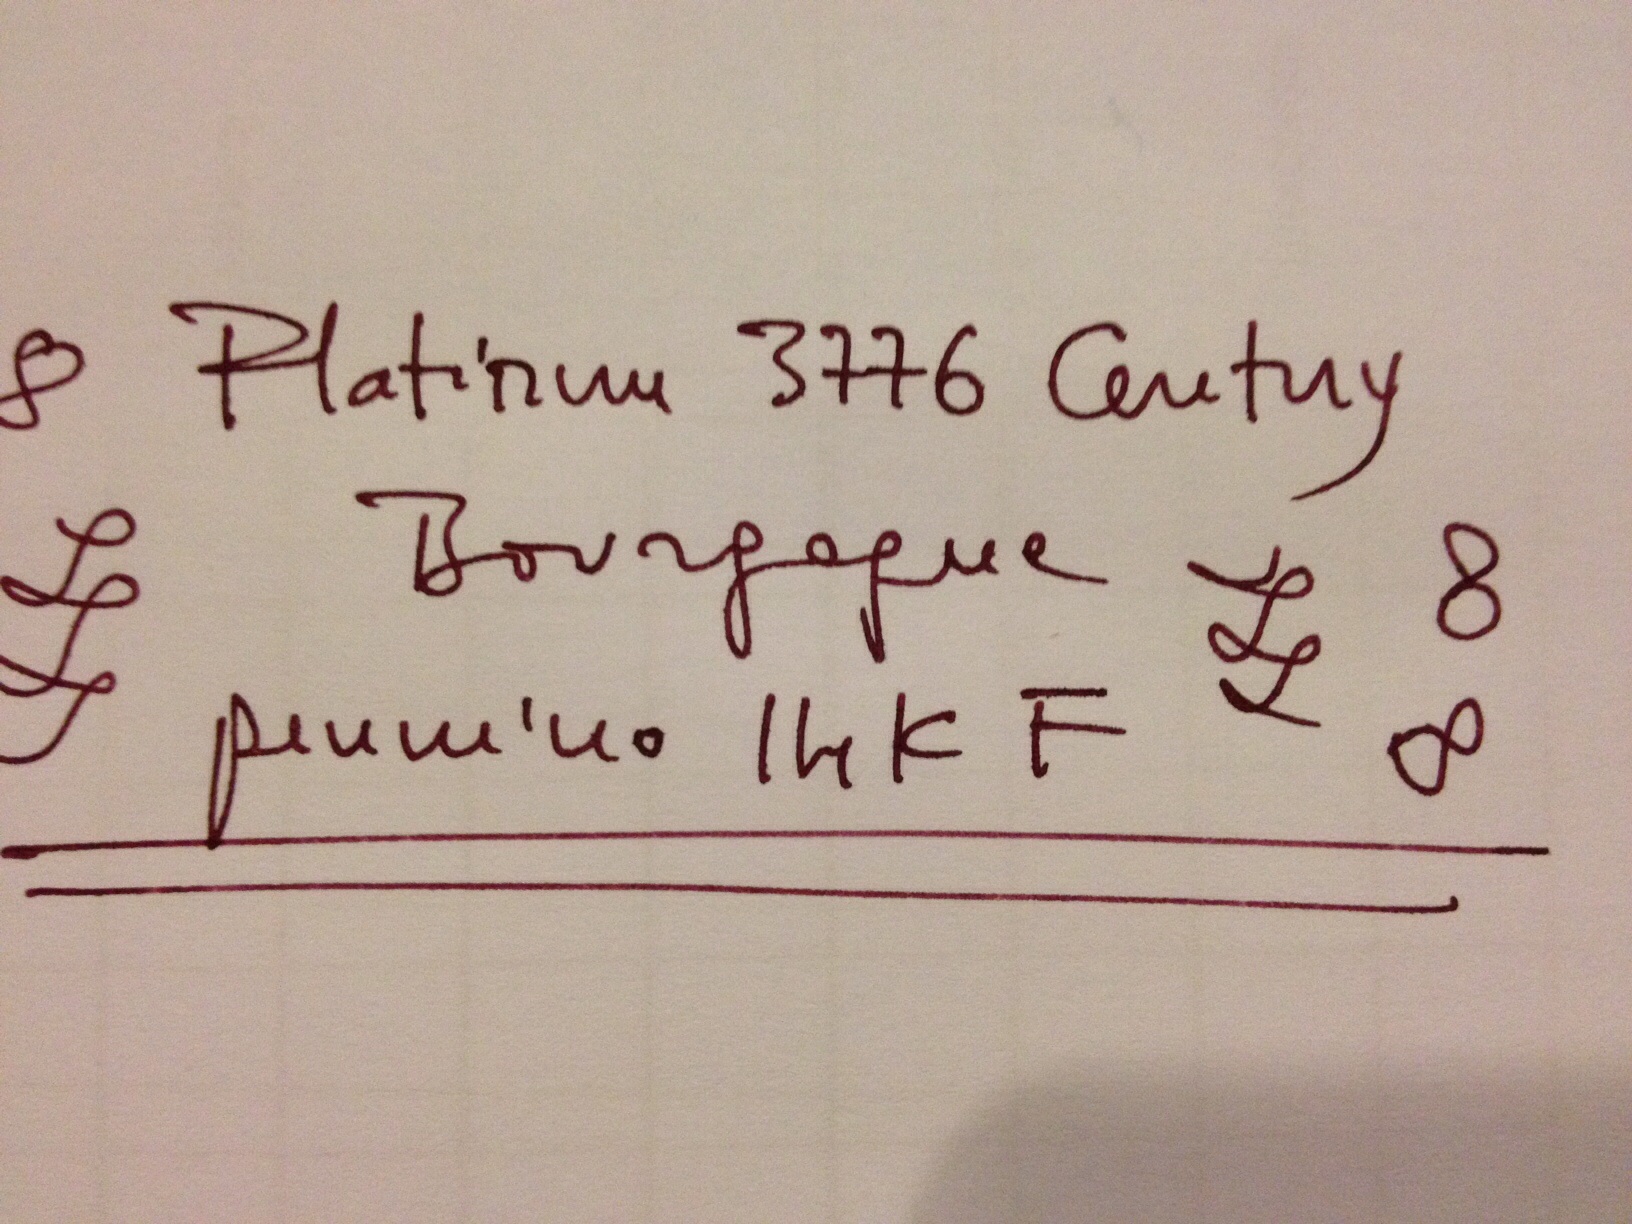 8 Platinum 3776 Century
Bourgogne 8
pennino 14K F 8